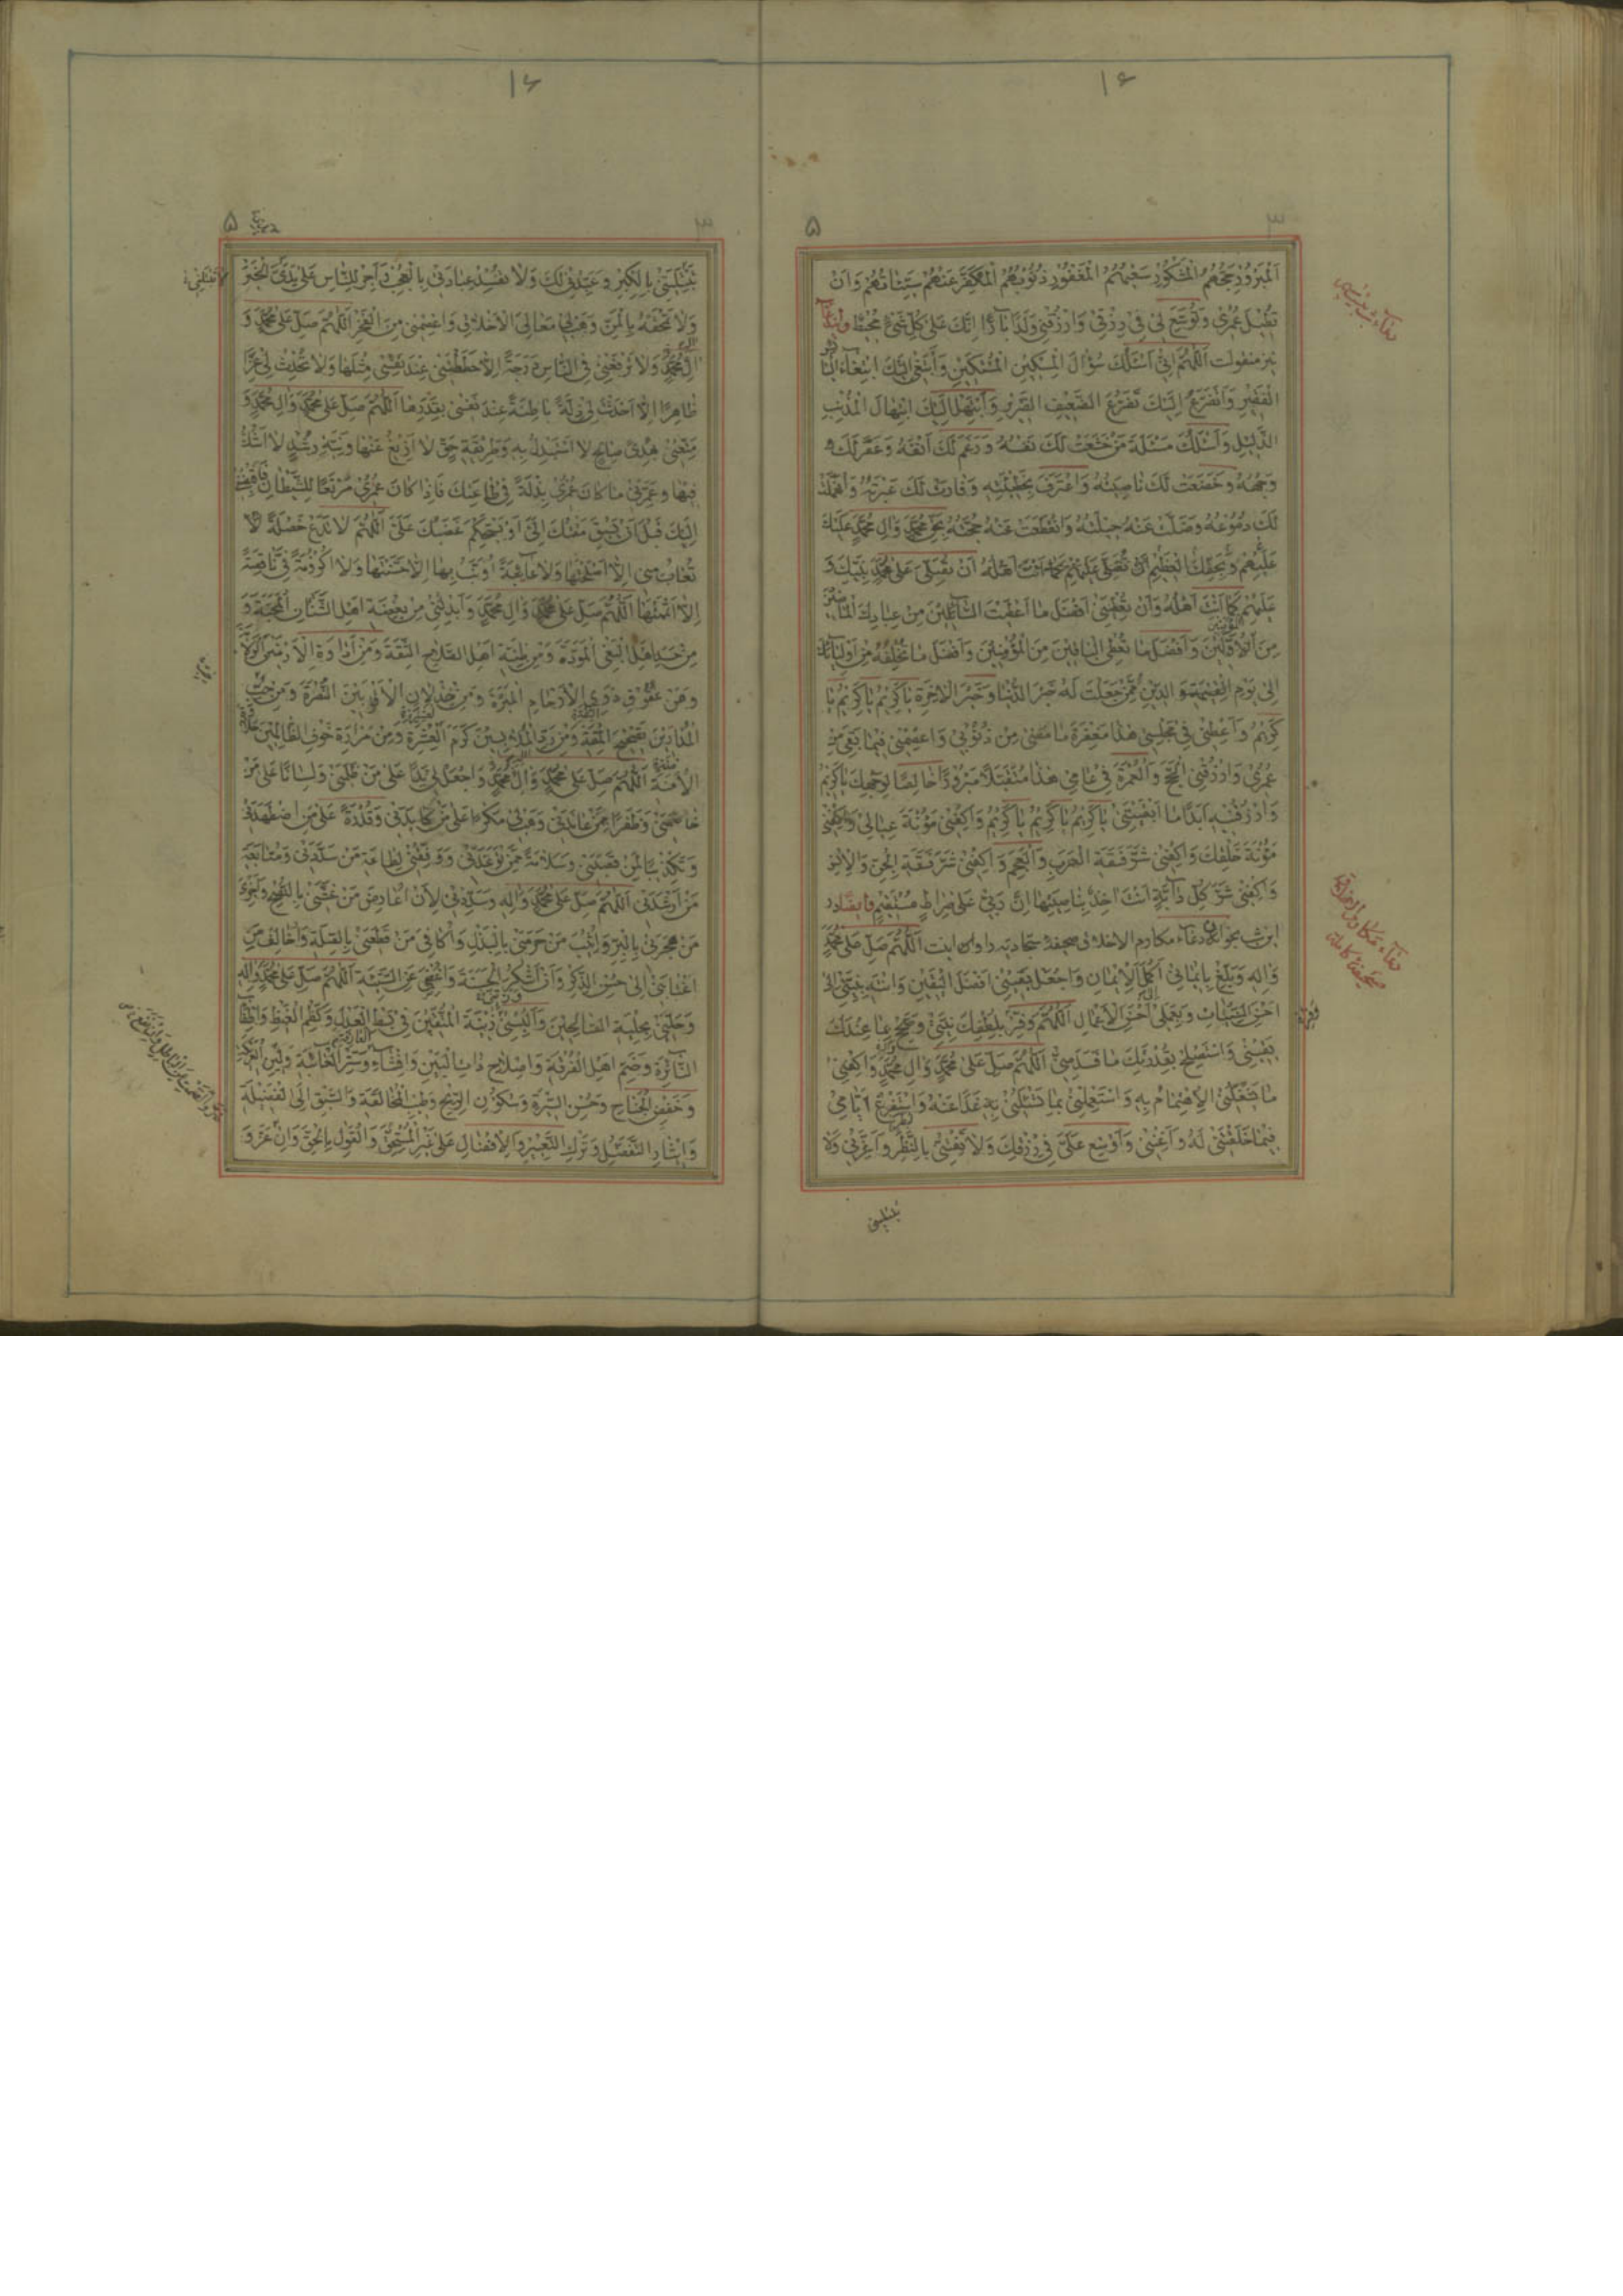 ۱۶
۵
۳
اَلْمَبْرُورِ حَجُّهُمْ الْمَشْكُورِ سَعْيُهُمْ الْمَغْفُورِ ذُنُوبُهُمْ الْمُكَفَّرِ عَنْهُمْ سَيِّئَاتُهُمْ وَاَنْ
تُطِيلَ عُمْرِي وَتُوَسِّعَ لِي فِي رِزْقِي وَارْزُقْنِي وَلَدًا بَارًّا اِنَّكَ عَلَى كُلِّ شَيْءٍ مُحِيطٌ
نیز منقولست اَللّٰهُمَّ اِنِّي اَسْئَلُكَ سُؤَالَ الْمِسْكِينِ الْمُسْتَكِينِ وَاَبْتَغِي اِلَيْكَ ابْتِغَاءَ الْبَائِسِ
الْفَقِيرِ وَاَتَضَرَّعُ اِلَيْكَ تَضَرُّعَ الضَّعِيفِ الضَّرِيرِ وَاَبْتَهِلُ اِلَيْكَ ابْتِهَالَ الْمُذْنِبِ
الذَّلِيلِ وَاَسْئَلُكَ مَسْئَلَةَ مَنْ خَضَعَتْ لَكَ نَفْسُهُ وَرَغِمَ لَكَ اَنْفُهُ وَعَفَّرَ لَكَ
وَجْهَهُ وَخَضَعَتْ لَكَ نَاصِيَتُهُ وَاعْتَرَفَ بِخَطِيئَتِهِ وَفَاضَتْ لَكَ عَبْرَتُهُ وَانْهَمَلَتْ
لَكَ دُمُوعُهُ وَضَلَّتْ عَنْهُ حِيلَتُهُ وَانْقَطَعَتْ عَنْهُ حُجَّتُهُ بِحَقِّ مُحَمَّدٍ وَاٰلِ مُحَمَّدٍ عَلَيْكَ
عَلَيْهِمْ وَبِحَقِّكَ الْعَظِيمِ اَنْ تُصَلِّيَ عَلَيْهِمْ كَمَا اَنْتَ اَهْلُهُ اَنْ تُصَلِّيَ عَلَى مُحَمَّدٍ نَبِيِّكَ وَ
عَلَيْهِمْ كَمَا اَنْتَ اَهْلُهُ وَاَنْ تُعْطِيَنِي اَفْضَلَ مَا اَعْطَيْتَ السَّائِلِينَ مِنْ عِبَادِكَ الْمَاضِينَ
مِنَ الْاَوَّلِينَ وَاَفْضَلَ مَا تُعْطِي الْبَاقِينَ مِنَ الْمُؤْمِنِينَ وَاَفْضَلَ مَا تَخْلُقُهُ مِنْ اَوْلِيَائِكَ
اِلَى يَوْمِ الْقِيٰمَةِ وَالدِّينِ مِمَّنْ جَعَلْتَ لَهُ خَيْرَ الدُّنْيَا وَخَيْرَ الْاٰخِرَةِ يَا كَرِيمُ يَا كَرِيمُ يَا
كَرِيمُ وَاَعْطِنِي فِي مَجْلِسِي هٰذَا مَغْفِرَةَ مَا مَضَى مِنْ ذُنُوبِي وَاعْصِمْنِي فِيمَا بَقِيَ مِنْ
عُمْرِي وَارْزُقْنِي الْحَجَّ وَالْعُمْرَةَ فِي عَامِي هٰذَا مُتَقَبَّلًا مَبْرُورًا خَالِصًا لِوَجْهِكَ يَا كَرِيمُ
وَارْزُقْنِيهِ اَبَدًا مَا اَبْقَيْتَنِي يَا كَرِيمُ يَا كَرِيمُ يَا كَرِيمُ وَاكْفِنِي مَؤُنَةَ عِيَالِي وَاكْفِنِي
مَؤُنَةَ خَلْقِكَ وَاكْفِنِي شَرَّ فَسَقَةِ الْعَرَبِ وَالْعَجَمِ وَاكْفِنِي شَرَّ فَسَقَةِ الْجِنِّ وَالْاِنْسِ
وَاكْفِنِي شَرَّ كُلِّ دَابَّةٍ اَنْتَ اٰخِذٌ بِنَاصِيَتِهَا اِنَّ رَبِّي عَلَى صِرَاطٍ مُسْتَقِيمٍ وایضا در
این شب بخواند دعاء مکارم الاخلاق صحیفۀ سجادیه را و آن اینست اَللّٰهُمَّ صَلِّ عَلَى مُحَمَّدٍ
وَاٰلِهِ وَبَلِّغْ بِاِيمَانِي اَكْمَلَ الْاِيمَانِ وَاجْعَلْ يَقِينِي اَفْضَلَ الْيَقِينِ وَانْتَهِ بِنِيَّتِي اِلَى
اَحْسَنِ النِّيَّاتِ وَبِعَمَلِي اِلَى اَحْسَنِ الْاَعْمَالِ اَللّٰهُمَّ وَفِّرْ بِلُطْفِكَ نِيَّتِي وَصَحِّحْ بِمَا عِنْدَكَ
يَقِينِي وَاسْتَصْلِحْ بِقُدْرَتِكَ مَا فَسَدَ مِنِّي اَللّٰهُمَّ صَلِّ عَلَى مُحَمَّدٍ وَاٰلِ مُحَمَّدٍ وَاكْفِنِي
مَا يَشْغَلُنِي الْاِهْتِمَامُ بِهِ وَاسْتَعْمِلْنِي بِمَا تَسْئَلُنِي بِهِ غَدًا عَنْهُ وَاسْتَفْرِغْ اَيَّامِي
فِيمَا خَلَقْتَنِي لَهُ وَاَغْنِنِي وَاَوْسِعْ عَلَيَّ فِي رِزْقِكَ وَلَا تَفْتِنِّي بِالنَّظَرِ وَاَعِزَّنِي وَلَا
دعاء مکارم الاخلاق
صحیفۀ کامله
۱۶
۵
۳
تَبْتَلِيَنِّي بِالْكِبْرِ وَعَبِّدْنِي لَكَ وَلَا تُفْسِدْ عِبَادَتِي بِالْعُجْبِ وَاَجْرِ لِلنَّاسِ عَلَى يَدَيَّ الْخَيْرَ
وَلَا تَمْحَقْهُ بِالْمَنِّ وَهَبْ لِي مَعَالِيَ الْاَخْلَاقِ وَاعْصِمْنِي مِنَ الْفَخْرِ اَللّٰهُمَّ صَلِّ عَلَى مُحَمَّدٍ وَ
اٰلِ مُحَمَّدٍ وَلَا تَرْفَعْنِي فِي النَّاسِ دَرَجَةً اِلَّا حَطَطْتَنِي عِنْدَ نَفْسِي مِثْلَهَا وَلَا تُحْدِثْ لِي عِزًّا
ظَاهِرًا اِلَّا اَحْدَثْتَ لِي ذِلَّةً بَاطِنَةً عِنْدَ نَفْسِي بِقَدَرِهَا اَللّٰهُمَّ صَلِّ عَلَى مُحَمَّدٍ وَاٰلِ مُحَمَّدٍ وَ
مَتِّعْنِي بِهُدًى صَالِحٍ لَا اَسْتَبْدِلُ بِهِ وَطَرِيقَةِ حَقٍّ لَا اَزِيغُ عَنْهَا وَنِيَّةِ رُشْدٍ لَا اَشُكُّ
فِيهَا وَعَمِّرْنِي مَا كَانَ عُمْرِي بِذْلَةً فِي طَاعَتِكَ فَاِذَا كَانَ عُمْرِي مَرْتَعًا لِلشَّيْطَانِ فَاقْبِضْنِي
اِلَيْكَ قَبْلَ اَنْ يَسْبِقَ مَقْتُكَ اِلَيَّ اَوْ يَسْتَحْكِمَ غَضَبُكَ عَلَيَّ اَللّٰهُمَّ لَا تَدَعْ خَصْلَةً
تُعَابُ مِنِّي اِلَّا اَصْلَحْتَهَا وَلَا عَائِبَةً اُوَنَّبُ بِهَا اِلَّا حَسَّنْتَهَا وَلَا اُكْرُومَةً فِيَّ نَاقِصَةً
اِلَّا اَتْمَمْتَهَا اَللّٰهُمَّ صَلِّ عَلَى مُحَمَّدٍ وَاٰلِ مُحَمَّدٍ وَاَبْدِلْنِي مِنْ بِغْضَةِ اَهْلِ الشَّنَاٰنِ الْمَحَبَّةَ وَ
مِنْ حَسَدِ اَهْلِ الْبَغْيِ الْمَوَدَّةَ وَمِنْ ظِنَّةِ اَهْلِ الصَّلَاحِ الثِّقَةَ وَمِنْ عَدَاوَةِ الْاَدْنَيْنَ الْوَلَايَةَ
وَمِنْ عُقُوقِ ذَوِي الْاَرْحَامِ الْمَبَرَّةَ وَمِنْ خِذْلَانِ الْاَقْرَبِينَ النُّصْرَةَ وَمِنْ حُبِّ
الْمُدَارِينَ تَصْحِيحَ الْمِقَةِ وَمِنْ رَدِّ الْمُلَابِسِينَ كَرَمَ الْعِشْرَةِ وَمِنْ مَرَارَةِ خَوْفِ الظَّالِمِينَ حَلَاوَةَ
الْاَمَنَةِ اَللّٰهُمَّ صَلِّ عَلَى مُحَمَّدٍ وَاٰلِ مُحَمَّدٍ وَاجْعَلْ لِي يَدًا عَلَى مَنْ ظَلَمَنِي وَلِسَانًا عَلَى مَنْ
خَاصَمَنِي وَظَفَرًا بِمَنْ عَانَدَنِي وَهَبْ لِي مَكْرًا عَلَى مَنْ كَايَدَنِي وَقُدْرَةً عَلَى مَنِ اضْطَهَدَنِي
وَتَكْذِيبًا لِمَنْ قَصَبَنِي وَسَلَامَةً مِمَّنْ تَوَعَّدَنِي وَوَفِّقْنِي لِطَاعَةِ مَنْ سَدَّدَنِي وَمُتَابَعَةِ
مَنْ اَرْشَدَنِي اَللّٰهُمَّ صَلِّ عَلَى مُحَمَّدٍ وَاٰلِهِ وَسَدِّدْنِي لِاَنْ اُعَارِضَ مَنْ غَشَّنِي بِالنُّصْحِ وَاَجْزِيَ
مَنْ هَجَرَنِي بِالْبِرِّ وَاُثِيبَ مَنْ حَرَمَنِي بِالْبَذْلِ وَاُكَافِيَ مَنْ قَطَعَنِي بِالصِّلَةِ وَاُخَالِفَ مَنِ
اغْتَابَنِي اِلَى حُسْنِ الذِّكْرِ وَاَنْ اَشْكُرَ الْحَسَنَةَ وَاُغْضِيَ عَنِ السَّيِّئَةِ اَللّٰهُمَّ صَلِّ عَلَى مُحَمَّدٍ وَاٰلِهِ
وَحَلِّنِي بِحِلْيَةِ الصَّالِحِينَ وَاَلْبِسْنِي زِينَةَ الْمُتَّقِينَ فِي بَسْطِ الْعَدْلِ وَكَظْمِ الْغَيْظِ وَاِطْفَاءِ
النَّائِرَةِ وَضَمِّ اَهْلِ الْفُرْقَةِ وَاِصْلَاحِ ذَاتِ الْبَيْنِ وَاِفْشَاءِ الْعَارِفَةِ وَسَتْرِ الْعَائِبَةِ وَلِينِ الْعَرِيكَةِ
وَخَفْضِ الْجَنَاحِ وَحُسْنِ السِّيرَةِ وَسُكُونِ الرِّيحِ وَطِيبِ الْمُخَالَقَةِ وَالسَّبْقِ اِلَى الْفَضِيلَةِ
وَاِيثَارِ التَّفَضُّلِ وَتَرْكِ التَّعْيِيرِ وَالْاِفْضَالِ عَلَى غَيْرِ الْمُسْتَحِقِّ وَالْقَوْلِ بِالْحَقِّ وَاِنْ عَزَّ وَ